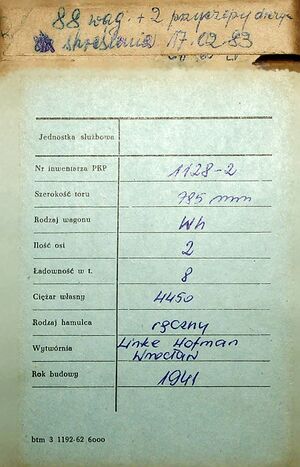 88 wag. + 2 przyczepy
skreślenia 17.02.83
Jednostka służbowa
Nr inwentarza PKP 1128-2
Szerokość toru 785 mm
Rodzaj wagonu Wh
Ilość osi 2
Ładowność w t. 8
Ciężar własny 4450
Rodzaj hamulca ręczny
Wytwórnia Linke Hofman
Wrocław
Rok budowy 1941
btm 3 1192-62 6000